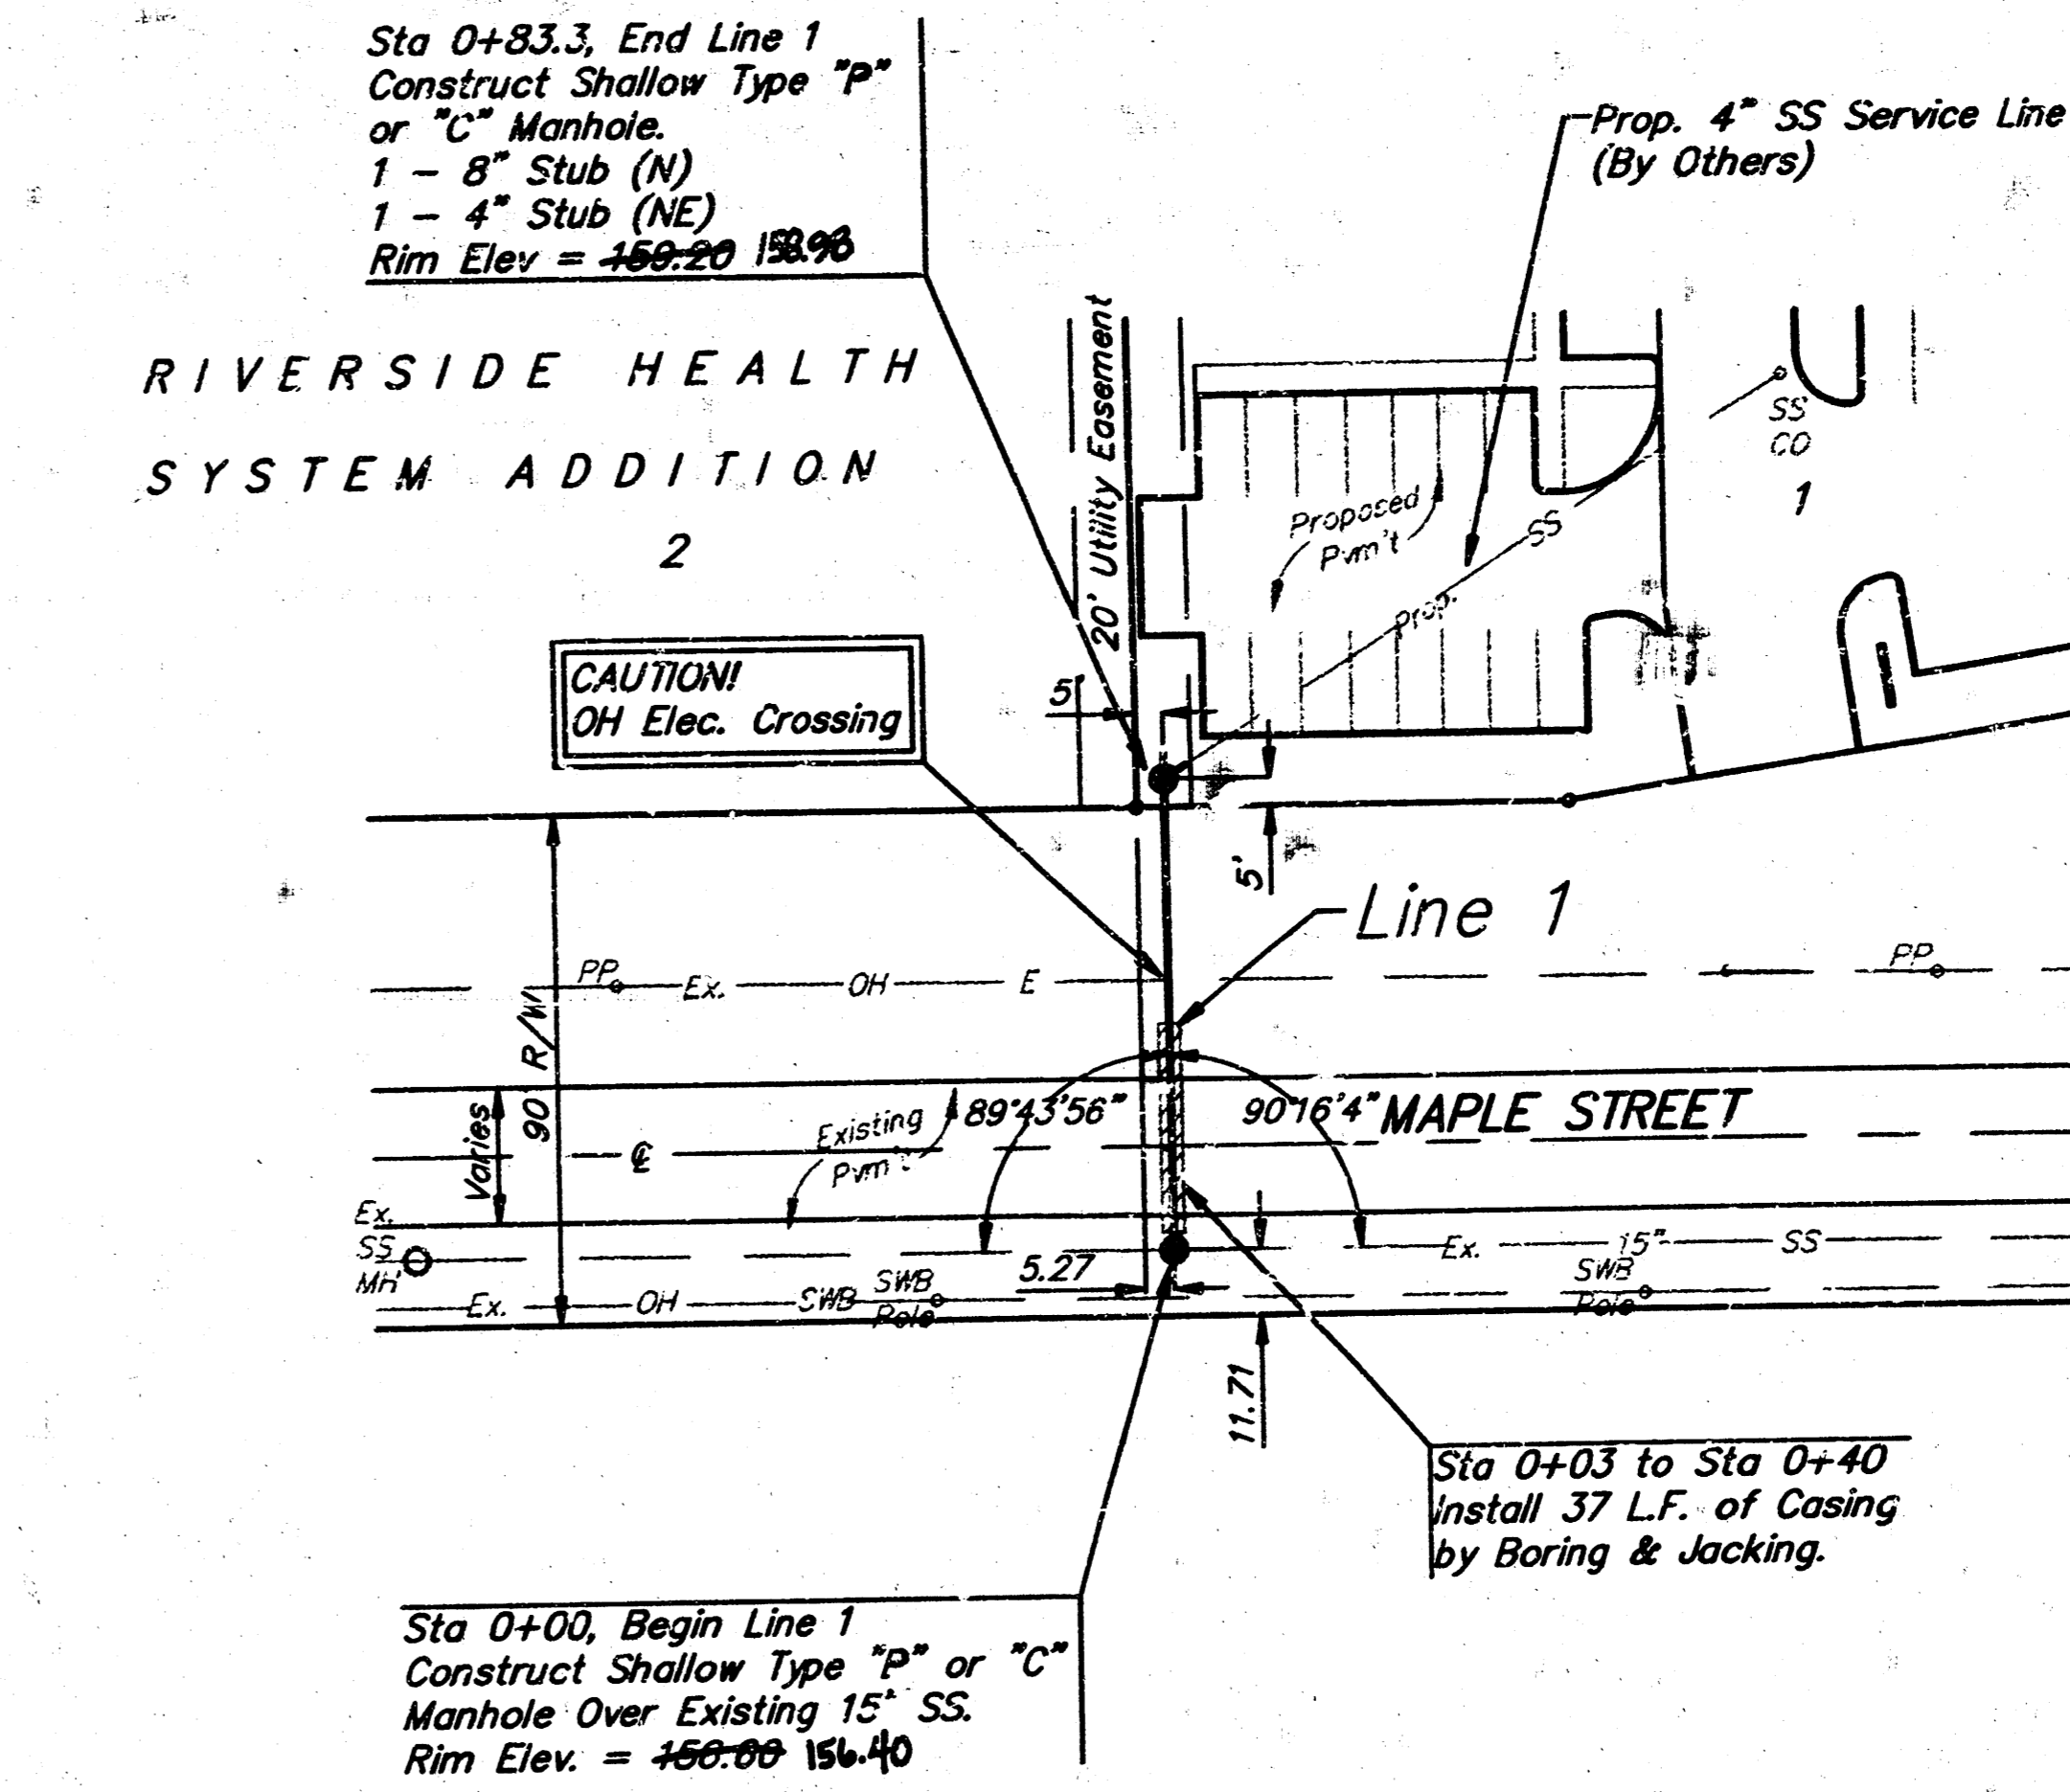 Sta 0+83.3, End Line 1
Construct Shallow Type "P"
or "C" Manhole.
1 - 8" Stub (N)
1 - 4" Stub (NE)
Rim Elev =
Prop. 4" SS Service Line
(By Others)
RIVERSIDE HEALTH
SYSTEM ADDITION
2
20' Utility Easement
SS
CO
1
Proposed
Pvm't
Prop.
SS
CAUTION!
OH Elec. Crossing
5'
5'
Line 1
PP
Ex. OH E
PP
90 R/W
Varies
Existing
Pvm't
89°43'56"
90°16'4"
MAPLE STREET
℄
Ex.
SS
MH
Ex. 15" SS
5.27
Ex. OH SWB
SWB
Pole
SWB
Pole
11.71
Sta 0+03 to Sta 0+40
Install 37 L.F. of Casing
by Boring & Jacking.
Sta 0+00, Begin Line 1
Construct Shallow Type "P" or "C"
Manhole Over Existing 15" SS.
Rim Elev. = 156.40